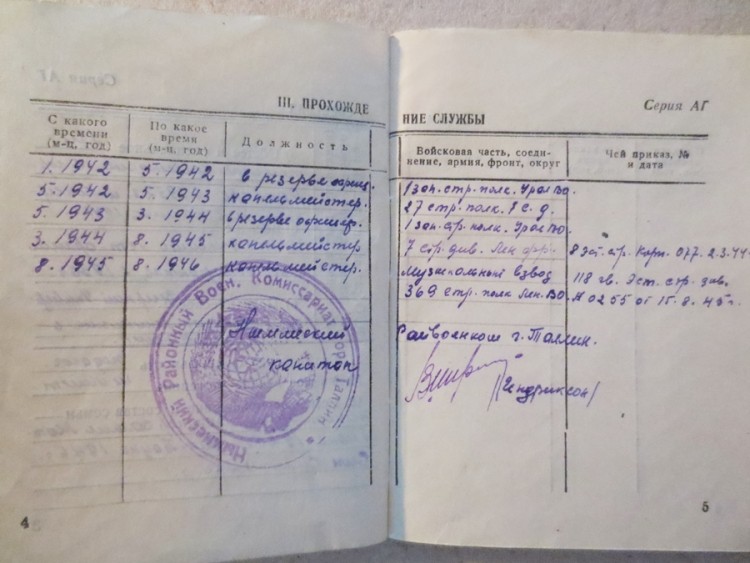 Серия АГ
III. ПРОХОЖДЕ
С какого времени (м-ц, год)
По какое время (м-ц, год)
Должность
1.1942 5.1942 в резерве офиц.
5.1942 5.1943 капельмейстер.
5.1943 3.1944 в резерве офицер.
3.1944 8.1945 капельмейстер
8.1945 8.1946 капельмейстер.
Ныммеский Районный Воен. Комиссариат гор. Таллин
Ныммеский
капитан
4
Серия АГ
НИЕ СЛУЖБЫ
Войсковая часть, соеди-
нение, армия, фронт, округ
Чей приказ, №
и дата
1 зап. стр. полк. УралВО.
27 стр. полк. 7 с. д.
1 зап. стр. полк. УралВО.
7 стр. див. Лен. фр. 8 Эст. стр. Корп. 077. 2.3.44.
Музыкальный взвод 118 гв. Эст. стр. див.
369 стр. полк Лен. ВО. № 0255 от 15.8.45 г.
Райвоенком г. Таллин.
(Гендриксон)
5